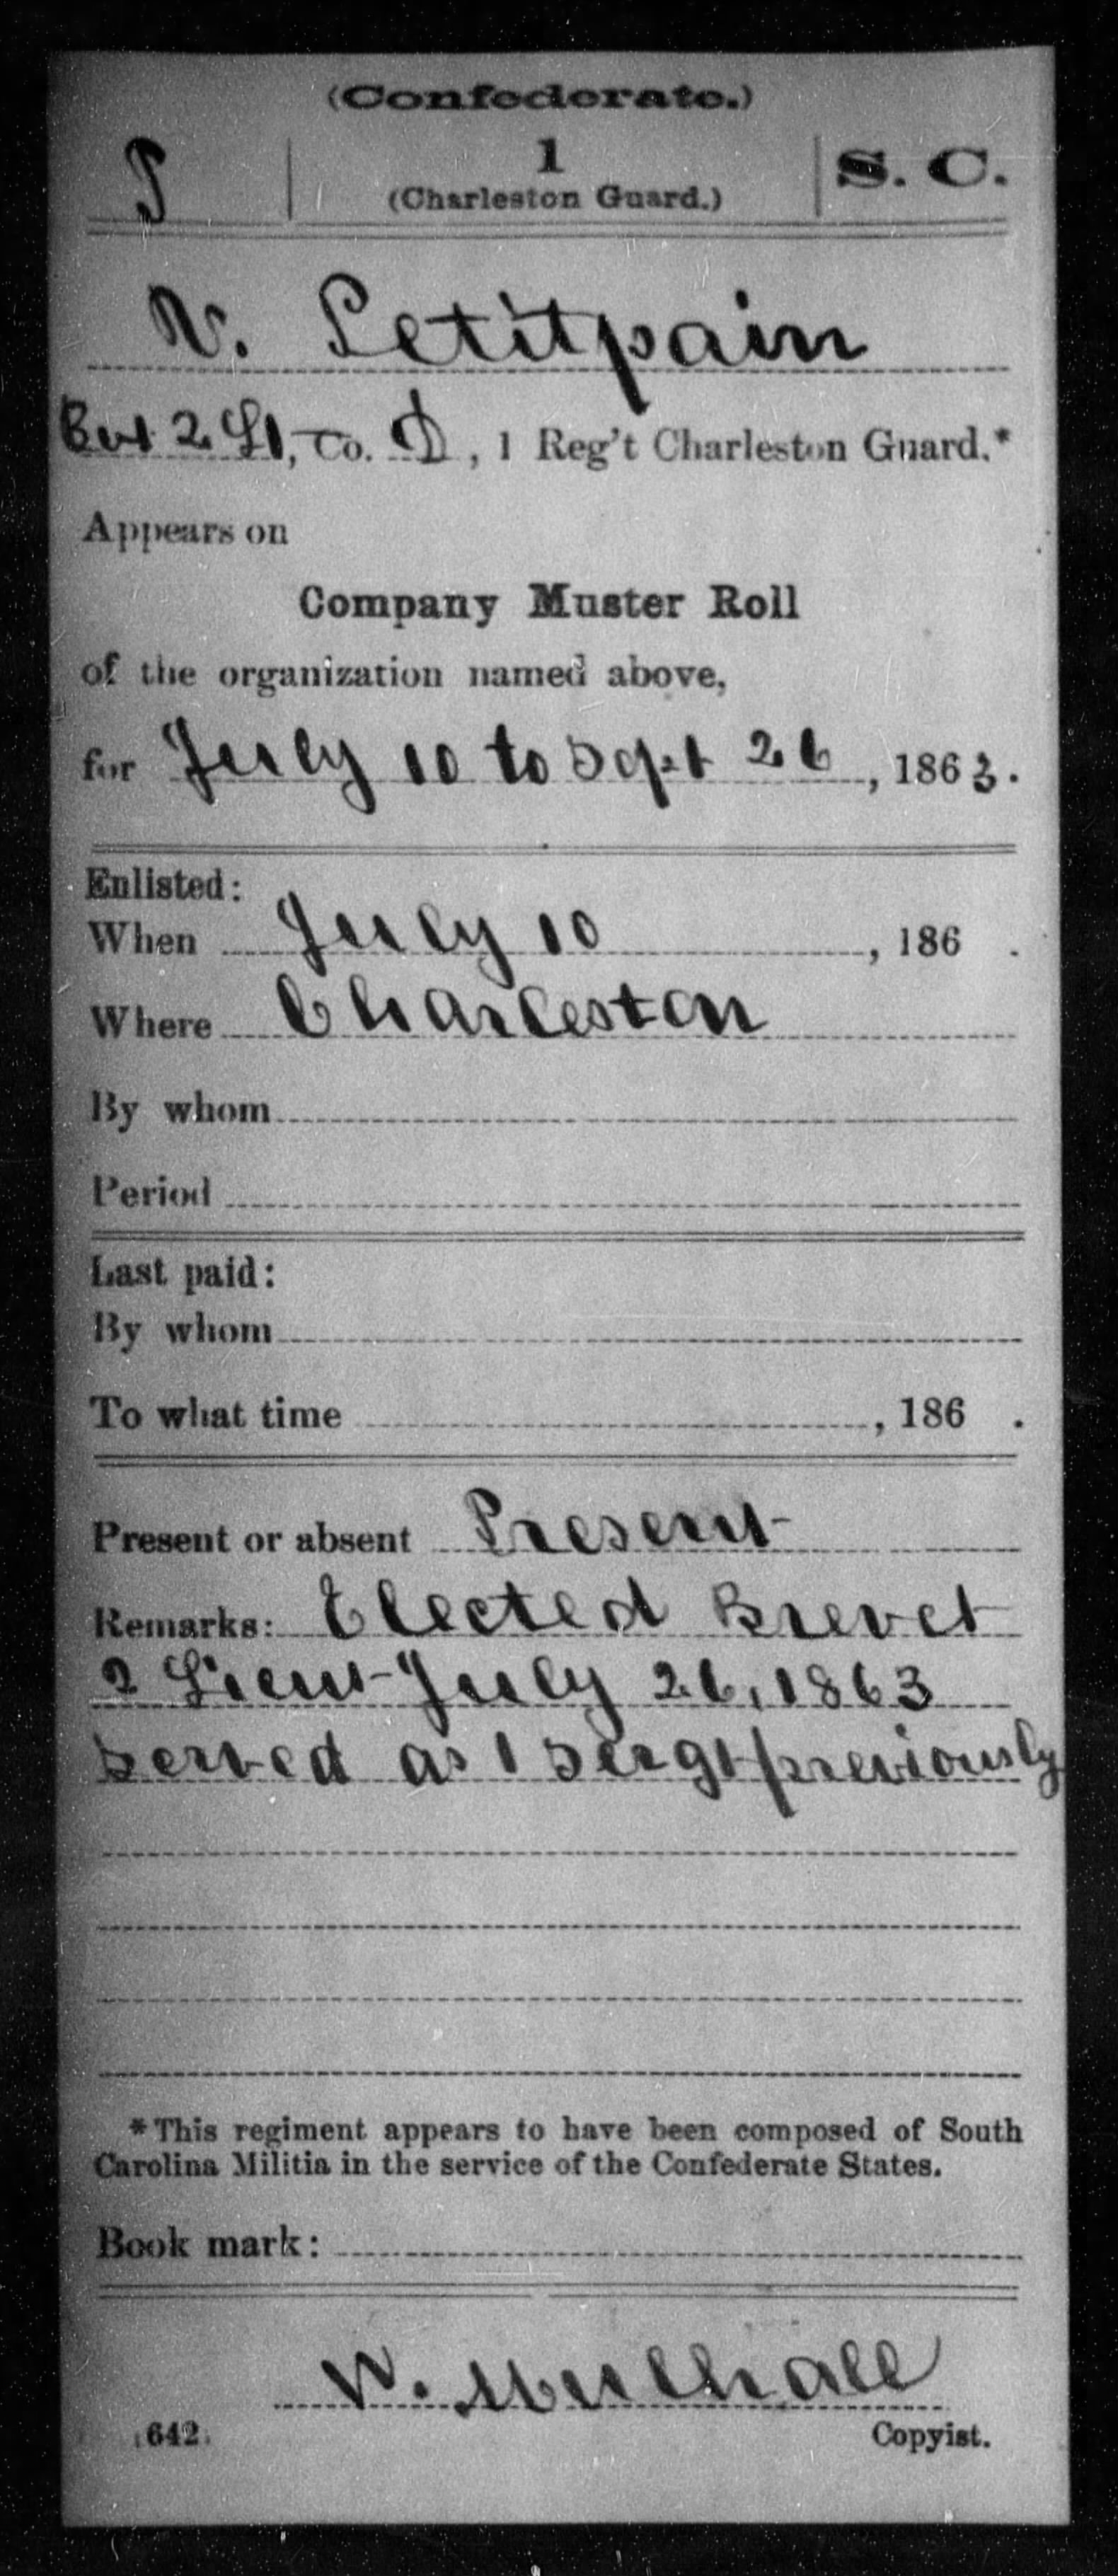 (Confederate.)
P | 1 | S. C.
(Charleston Guard.)
V. Petitpain
Bvt 2 Lt, Co. D, 1 Reg't Charleston Guard.*
Appears on
Company Muster Roll
of the organization named above,
for July 10 to Sept 26, 1863.
Enlisted:
When July 10, 186 .
Where Charleston
By whom
Period
Last paid:
By whom
To what time , 186 .
Present or absent Present
Remarks: Elected Brevet
2 Lieut July 26, 1863
served as 1 Sergt previously
*This regiment appears to have been composed of South
Carolina Militia in the service of the Confederate States.
Book mark:
W. Mulhall
(642) Copyist.